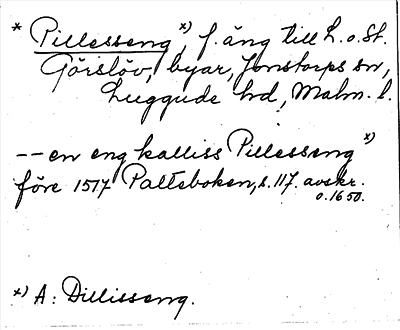 * Pillesseng x), f. äng till L. o. St.
Görslöv, byar, Jonstorps sn,
Luggude hd, Malm. l.
-- en eng kalliss Pillesseng x)
före 1517 Palteboken, s. 117. avskr.
o. 1650.
x) A: Dillisseng.